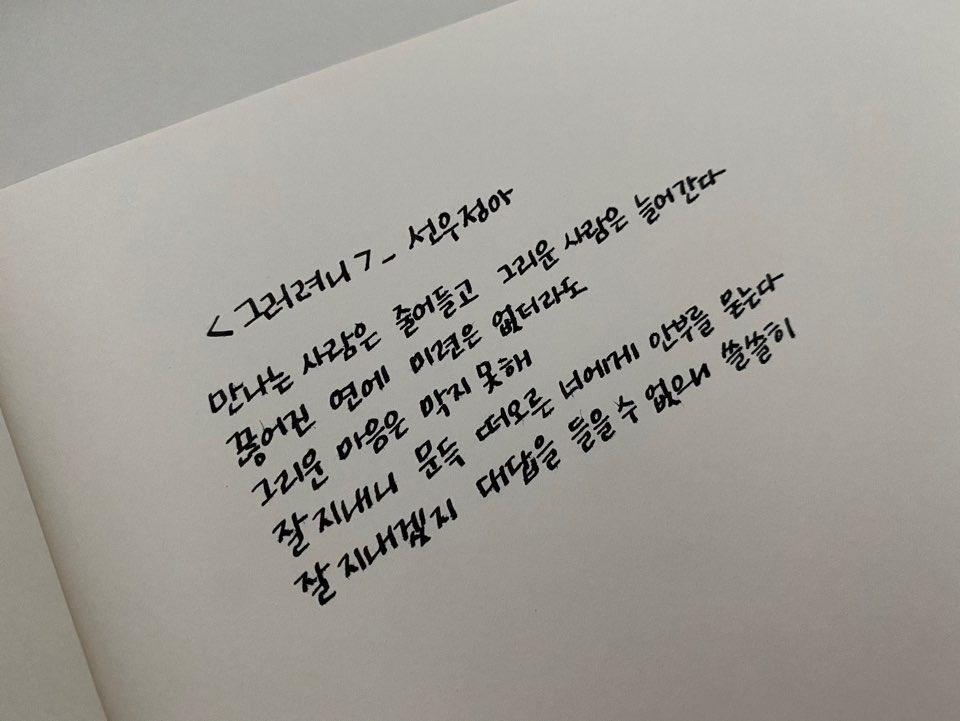 <그러려니>_ 선우정아
만나는 사람은 줄어들고 그리운 사람은 늘어간다
끊어진 연에 미련은 없더라도
그리운 마음은 막지 못해
잘 지내니 문득 떠오른 너에게 안부를 묻는다
잘 지내겠지 대답을 들을 수 없으니 쓸쓸히